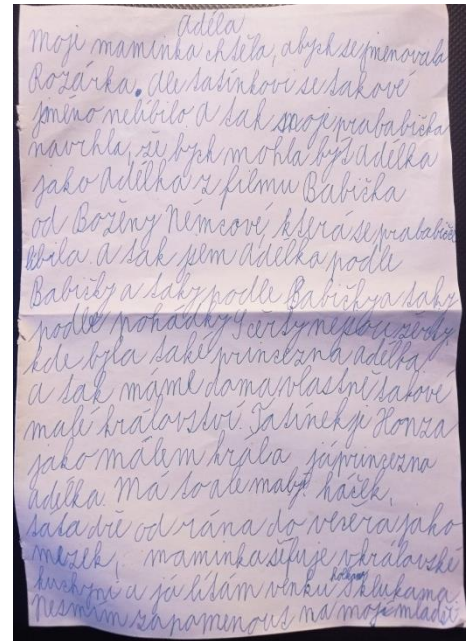 Adéla
moji maminka chtěla, abych se jmenovala
Rozárka. Ale tatínkovi se takové
jméno nelíbilo a tak moje prababička
navrhla, že bych mohla být Adélka
jako Adélka z filmu Babička
od Boženy Němcové, která se prababičce
líbila. a tak jsem Adélka podle
Babičky a taky podle Babičky a taky
podle pohádky S čerty nejsou žerty,
kde byla také princezna adélka.
a tak máme doma vlastně takové
malé království. Tatínek je Honza
jako málem krále já princezna
adélka. Má to ale malý háček,
tata dře od rána do večera jako
mezek, maminka šéfuje v královské
kuchyni a já lítám venku holema
s klukama.
Nesmím zapomenout na moji mladší